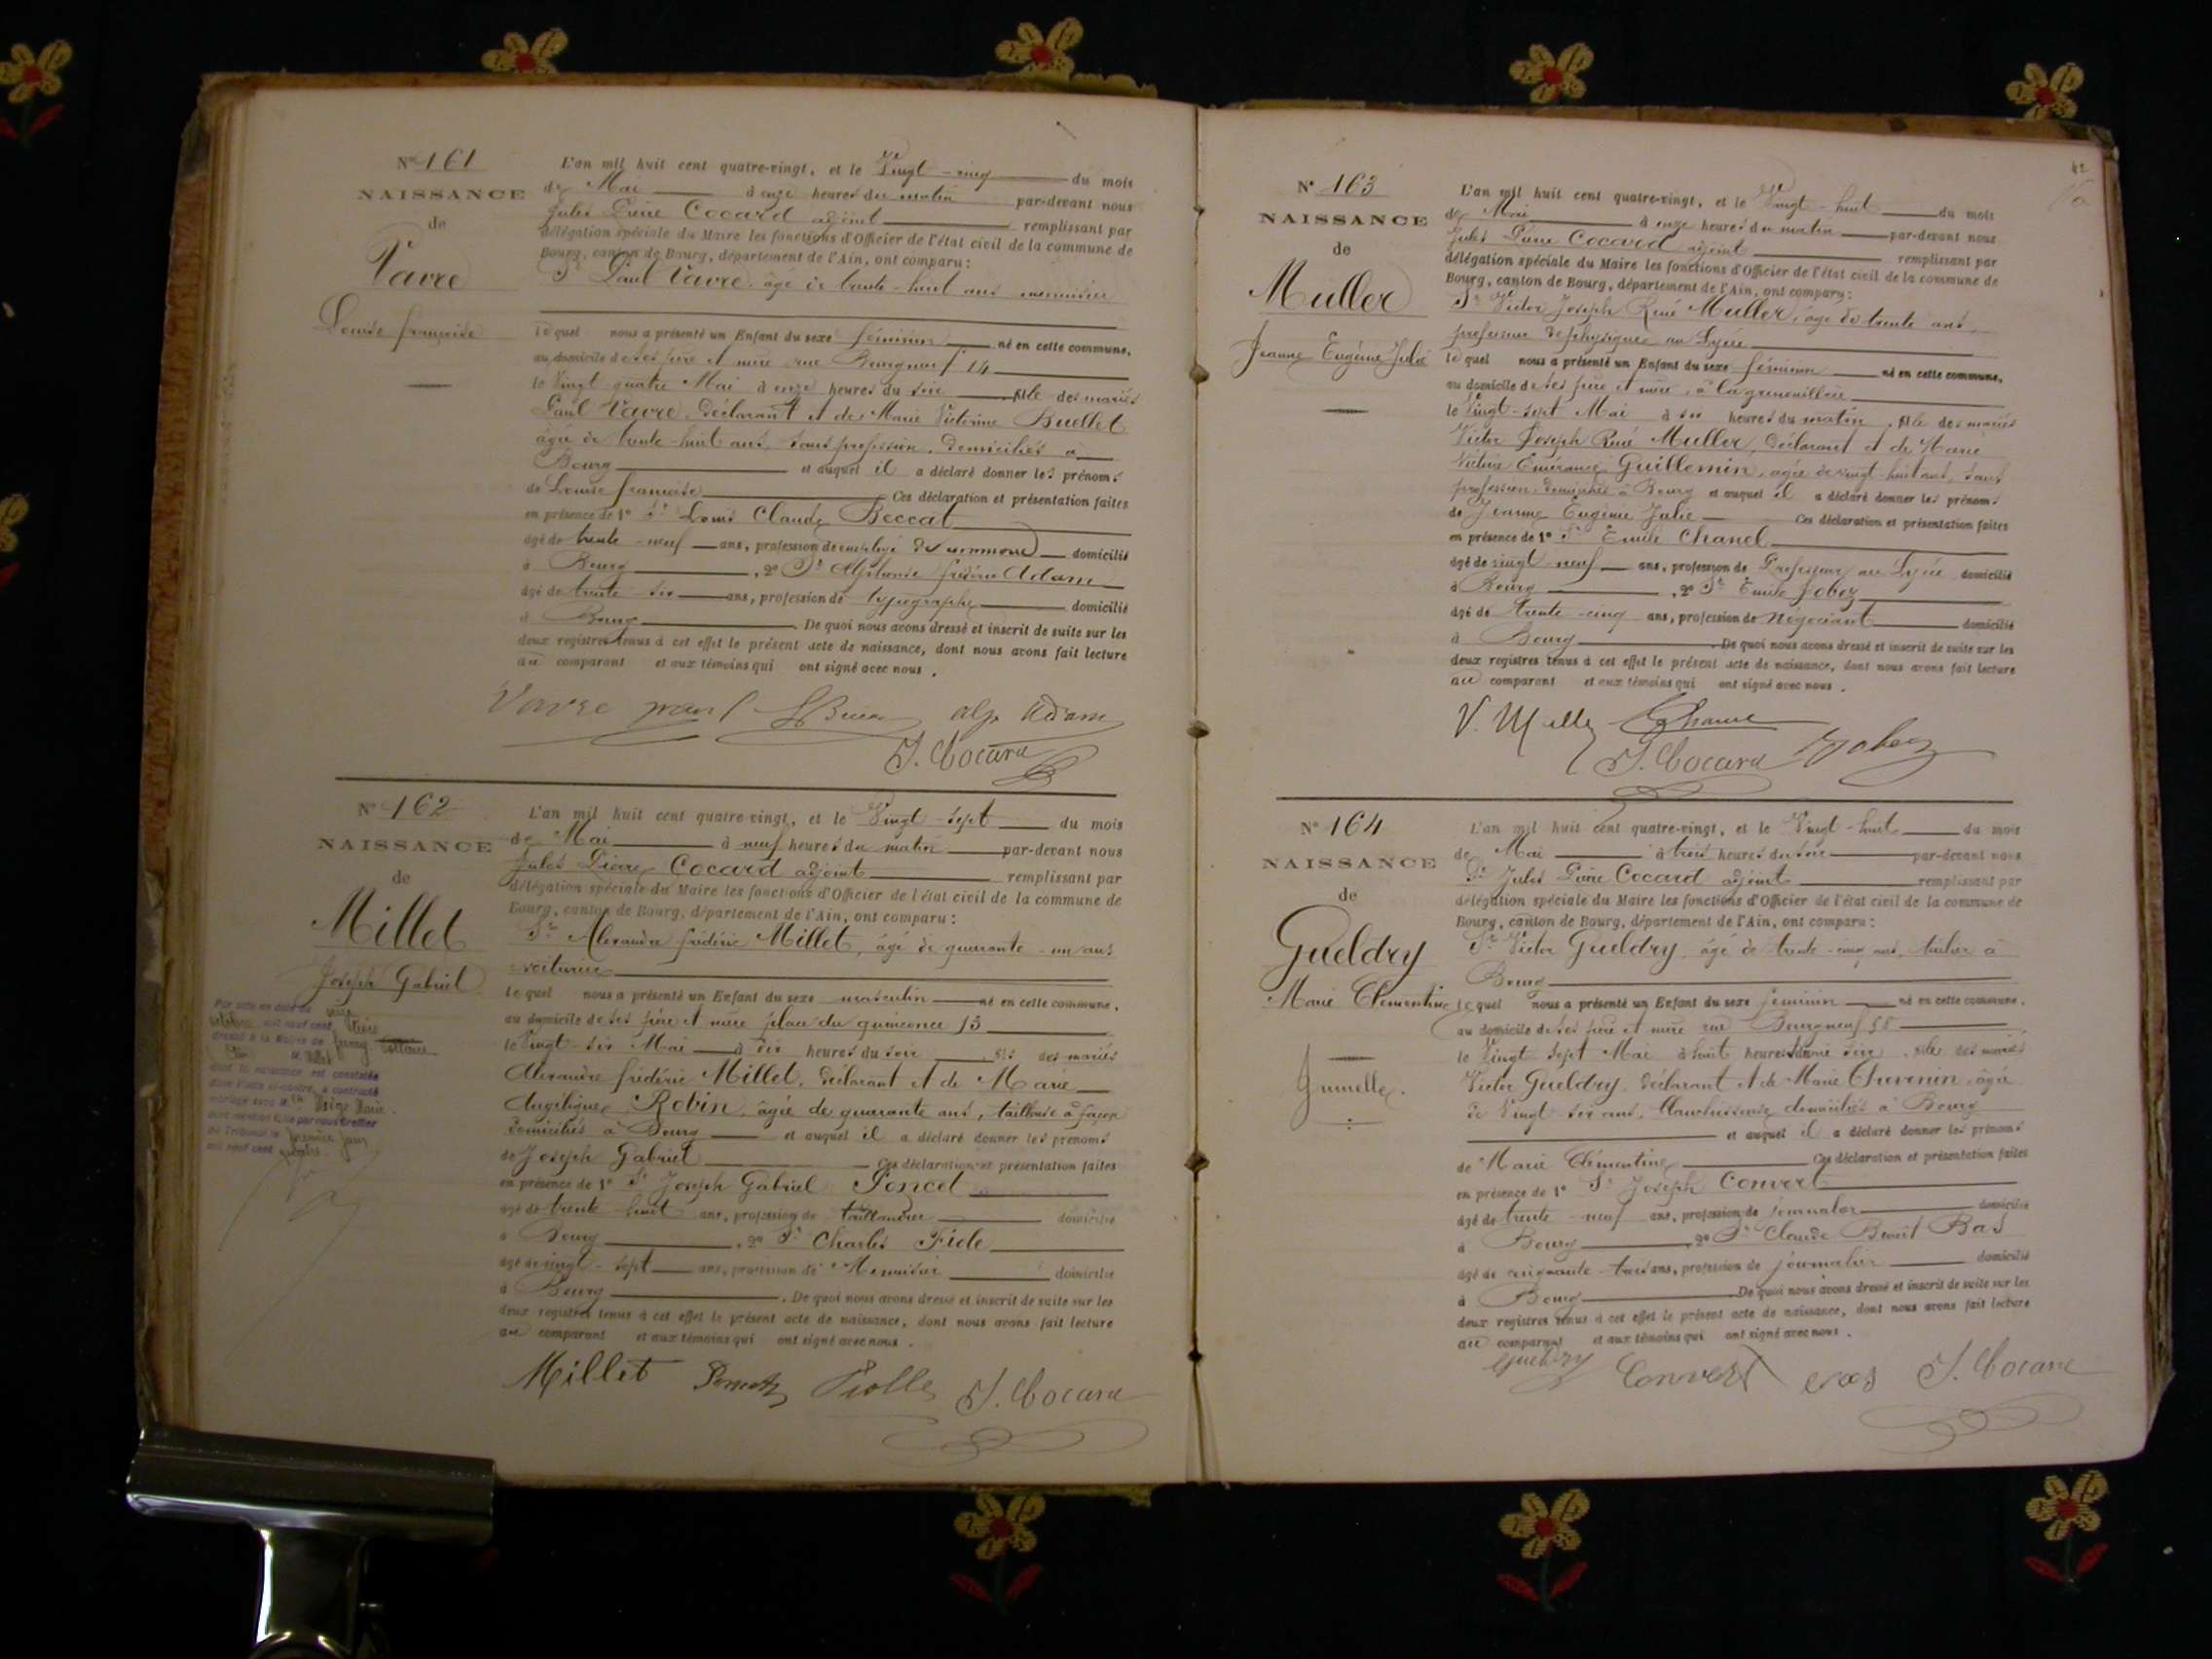 N° 161
NAISSANCE
de
Vavre
Louise françoise
L'an mil huit cent quatre-vingt, et le Vingt-cinq du mois
de Mai à onze heures du matin par-devant nous
Jules Pierre Cocard adjoint remplissant par
délégation spéciale du Maire les fonctions d'Officier de l'état civil de la commune de
Bourg, canton de Bourg, département de l'Ain, ont comparu :
Sr Paul Vavre, âgé de trente-huit ans menuisier
le quel nous a présenté un Enfant du sexe féminin né en cette commune,
au domicile de ses père et mère rue Bourgneuf 14
le Vingt quatre Mai à onze heures du soir fille des mariés
Paul Vavre, déclarant et de Marie Victorine Buellet
âgée de trente-huit ans, sans profession, domiciliés à
Bourg et auquel il a déclaré donner les prénoms
de Louise françoise Ces déclaration et présentation faites
en présence de 1° Sr Louis Claude Beccat
âgé de trente-neuf ans, profession de employé de commerce domicilié
à Bourg, 2° Sr Alphonse frédéric Adam
âgé de trente-six ans, profession de typographe domicilié
à Bourg. De quoi nous avons dressé et inscrit de suite sur les
deux registres tenus à cet effet le présent acte de naissance, dont nous avons fait lecture
au comparant et aux témoins qui ont signé avec nous.
Vavre paul alp adam
J. Cocard
N° 162
NAISSANCE
de
Millet
Joseph Gabriel
Par acte en date du
octobre mil neuf cent treize
dressé à la Mairie de
M. Millet
dont la naissance est constatée
dans l'acte ci-contre, a contracté
mariage avec Mlle
dont mention faite par nous Greffier
du Tribunal le premier juin
mil neuf cent
L'an mil huit cent quatre-vingt, et le Vingt-sept du mois
de Mai à neuf heures du matin par-devant nous
Jules Pierre Cocard adjoint remplissant par
délégation spéciale du Maire les fonctions d'Officier de l'état civil de la commune de
Bourg, canton de Bourg, département de l'Ain, ont comparu :
Sr Alexandre frédéric Millet, âgé de quarante-un ans
voiturier
le quel nous a présenté un Enfant du sexe masculin né en cette commune,
au domicile de ses père et mère place du quinconce 15
le Vingt-six Mai à six heures du soir fils des mariés
Alexandre frédéric Millet, déclarant et de Marie
Angélique Robin, âgée de quarante ans, tailleuse à façon
domiciliés à Bourg et auquel il a déclaré donner les prénoms
de Joseph Gabriel Ces déclaration et présentation faites
en présence de 1° Sr Joseph Gabriel Poncet
âgé de trente-huit ans, profession de taillandier domicilié
à Bourg, 2° Sr Charles Fiole
âgé de vingt-sept ans, profession de Menuisier domicilié
à Bourg. De quoi nous avons dressé et inscrit de suite sur les
deux registres tenus à cet effet le présent acte de naissance, dont nous avons fait lecture
au comparant et aux témoins qui ont signé avec nous.
Millet Poncet Fiolle J. Cocard
42
N° 163
NAISSANCE
de
Muller
Jeanne Eugénie Julie
L'an mil huit cent quatre-vingt, et le Vingt-huit du mois
de Mai à onze heures du matin par-devant nous
Jules Pierre Cocard adjoint remplissant par
délégation spéciale du Maire les fonctions d'Officier de l'état civil de la commune de
Bourg, canton de Bourg, département de l'Ain, ont comparu :
Sr Victor Joseph René Muller, âgé de trente ans,
professeur de physique au Lycée
le quel nous a présenté un Enfant du sexe féminin né en cette commune,
au domicile de ses père et mère, à la grenouillère
le Vingt-sept Mai à six heures du matin, fille des mariés
Victor Joseph René Muller, déclarant et de Marie
Guillemin, âgée de vingt-huit ans, sans
profession, domiciliés à Bourg et auquel il a déclaré donner les prénoms
de Jeanne Eugénie Julie Ces déclaration et présentation faites
en présence de 1° Sr Emile Chanel
âgé de vingt-neuf ans, profession de Professeur au Lycée domicilié
à Bourg, 2° Sr Emile Jobez
âgé de trente-cinq ans, profession de Négociant domicilié
à Bourg. De quoi nous avons dressé et inscrit de suite sur les
deux registres tenus à cet effet le présent acte de naissance, dont nous avons fait lecture
au comparant et aux témoins qui ont signé avec nous.
V. Muller
J. Cocard E Jobez
N° 164
NAISSANCE
de
Gueldry
Marie Clementine
Jumelle.
L'an mil huit cent quatre-vingt, et le Vingt-huit du mois
de Mai à trois heures du soir par-devant nous
Sr Jules Pierre Cocard adjoint remplissant par
délégation spéciale du Maire les fonctions d'Officier de l'état civil de la commune de
Bourg, canton de Bourg, département de l'Ain, ont comparu :
Sr Victor Gueldry, âgé de trente-cinq ans, tuilier à
Bourg
le quel nous a présenté un Enfant du sexe féminin né en cette commune,
au domicile de ses père et mère rue Bourgneuf 55
le Vingt sept Mai à huit heures du soir, fille des mariés
Victor Gueldry, déclarant et de Marie Thevenin, âgée
de Vingt six ans, blanchisseuse domiciliés à Bourg
et auquel il a déclaré donner les prénoms
de Marie Clémentine Ces déclaration et présentation faites
en présence de 1° Sr Joseph Convert
âgé de trente-neuf ans, profession de journalier domicilié
à Bourg, 2° Sr Claude Benoit Bas
âgé de cinquante-trois ans, profession de journalier domicilié
à Bourg. De quoi nous avons dressé et inscrit de suite sur les
deux registres tenus à cet effet le présent acte de naissance, dont nous avons fait lecture
au comparant et aux témoins qui ont signé avec nous.
Gueldry Convert Bas J. Cocard